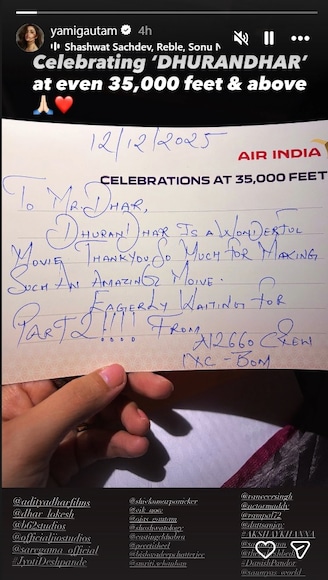 yamigautam 4h
Shashwat Sachdev, Reble, Sonu N
Celebrating 'DHURANDHAR'
at even 35,000 feet & above
🙏🏻❤️
12/12/2025
AIR INDIA
CELEBRATIONS AT 35,000 FEET
To Mr. Dhar,
Dhurandhar Is a Wonderful
Movie Thankyou So Much for Making
Such An Amazing Movie.
Eagerly Waiting for
Part 2!!!! From
AI2660 Crew
IXC - Bom
@adityadharfilms
@dhar_lokesh
@b62studios
@officialjiostudios
@saregama_official
#JyotiDeshpande
@shivkumarpanicker
@castingchhabra
@preetisheel
@smritischauhan
@ranveersingh
@actormaddy
@rampal72
@duttsanjay
#AKSHAYKHANNA
#DanishPandor
@saumyas_world_